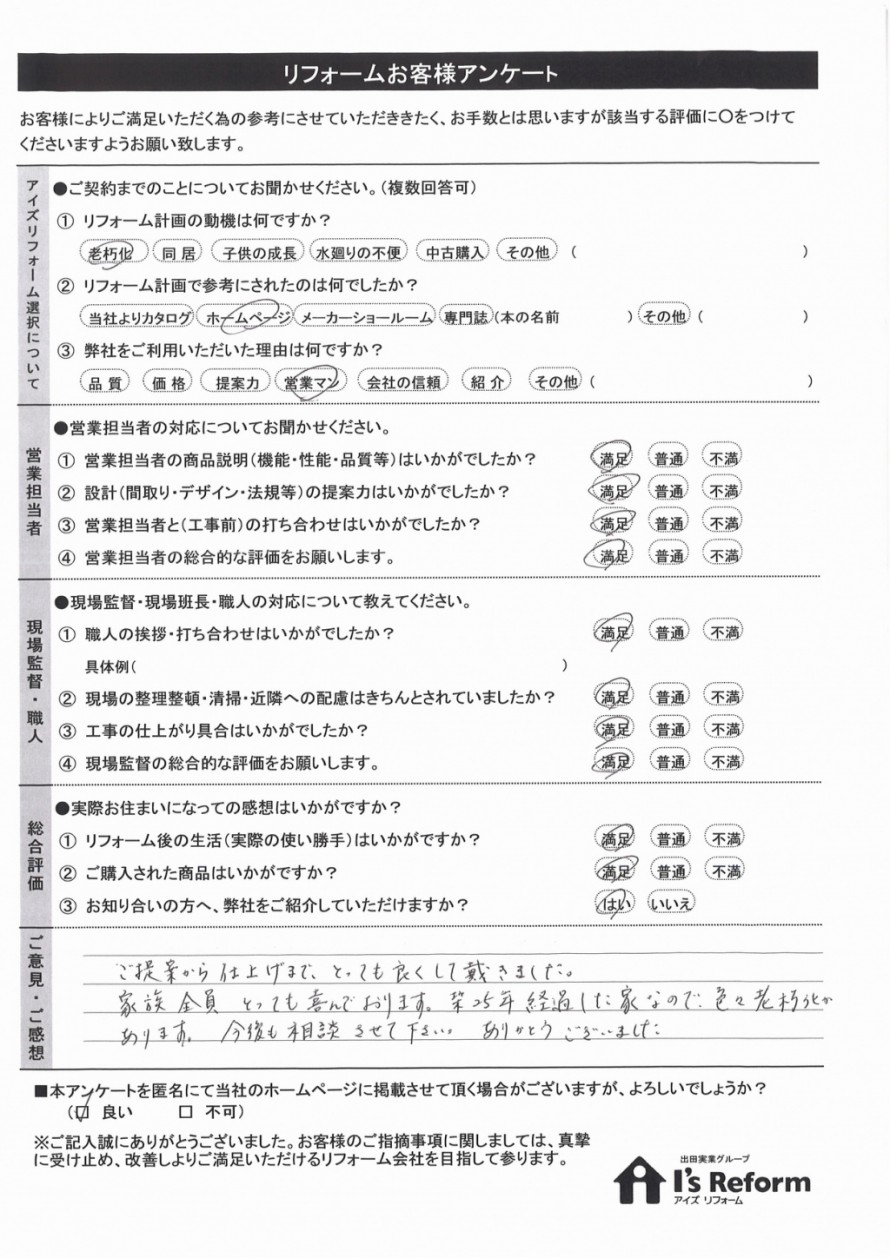 リフォームお客様アンケート
お客様によりご満足いただく為の参考にさせていただききたく、お手数とは思いますが該当する評価に〇をつけて
くださいますようお願い致します。
アイズリフォーム選択について
●ご契約までのことについてお聞かせください。(複数回答可)
① リフォーム計画の動機は何ですか?
老朽化 同居 子供の成長 水廻りの不便 中古購入 その他 ( )
② リフォーム計画で参考にされたのは何でしたか?
当社よりカタログ ホームページ メーカーショールーム 専門誌(本の名前 ) その他 ( )
③ 弊社をご利用いただいた理由は何ですか?
品質 価格 提案力 営業マン 会社の信頼 紹介 その他 ( )
営業担当者
●営業担当者の対応についてお聞かせください。
① 営業担当者の商品説明(機能・性能・品質等)はいかがでしたか? 満足 普通 不満
② 設計(間取り・デザイン・法規等)の提案力はいかがでしたか? 満足 普通 不満
③ 営業担当者と(工事前)の打ち合わせはいかがでしたか? 満足 普通 不満
④ 営業担当者の総合的な評価をお願いします。 満足 普通 不満
現場監督・職人
●現場監督・現場班長・職人の対応について教えてください。
① 職人の挨拶・打ち合わせはいかがでしたか? 満足 普通 不満
具体例( )
② 現場の整理整頓・清掃・近隣への配慮はきちんとされていましたか? 満足 普通 不満
③ 工事の仕上がり具合はいかがでしたか? 満足 普通 不満
④ 現場監督の総合的な評価をお願いします。 満足 普通 不満
総合評価
●実際お住まいになっての感想はいかがですか?
① リフォーム後の生活(実際の使い勝手)はいかがですか? 満足 普通 不満
② ご購入された商品はいかがですか? 満足 普通 不満
③ お知り合いの方へ、弊社をご紹介していただけますか? はい いいえ
ご意見・ご感想
ご提案から仕上げまで、とっても良くして戴きました。
家族全員 とっても喜んでおります。築25年経過した家なので、色々老朽化が
あります。今後も相談させて下さい。ありがとうございました
■本アンケートを匿名にて当社のホームページに掲載させて頂く場合がございますが、よろしいでしょうか?
(☑ 良い □ 不可)
※ご記入誠にありがとうございました。お客様のご指摘事項に関しましては、真摯
に受け止め、改善しよりご満足いただけるリフォーム会社を目指して参ります。
出田実業グループ
I's Reform
アイズ リフォーム